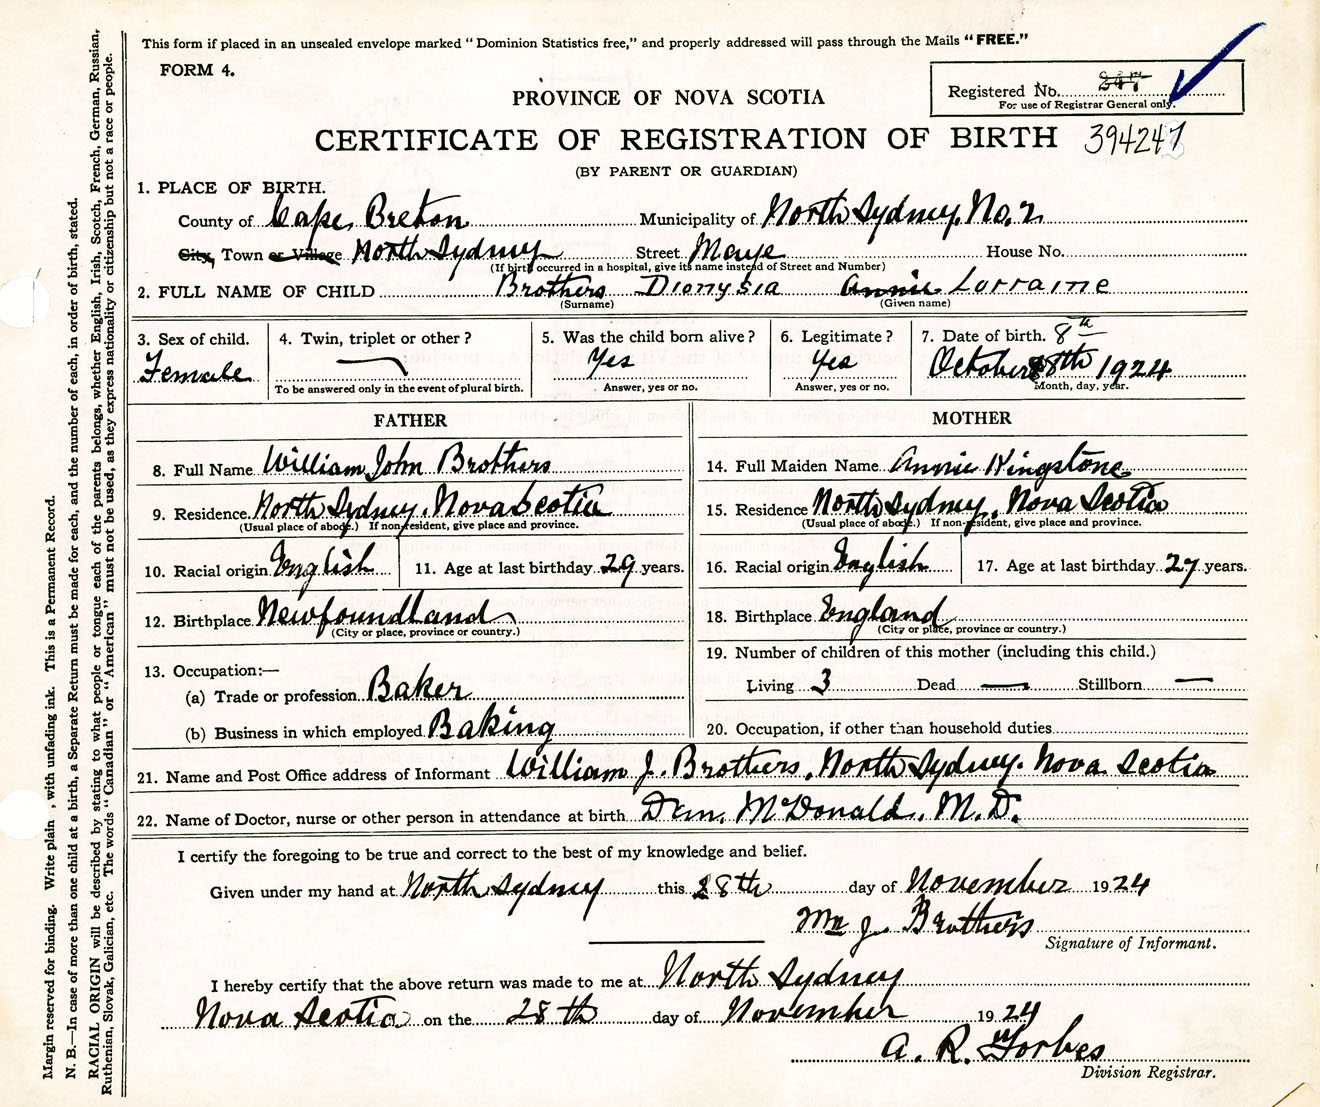 This form if placed in an unsealed envelope marked “ Dominion Statistics free,” and properly addressed will pass through the Mails “ FREE.”
FORM 4.
Registered No.
For use of Registrar General only.
PROVINCE OF NOVA SCOTIA
CERTIFICATE OF REGISTRATION OF BIRTH 394247
(BY PARENT OR GUARDIAN)
1. PLACE OF BIRTH.
County of Cape Breton Municipality of North Sydney. No. 2
City, Town or Village North Sydney Street Maye House No.
(If birth occurred in a hospital, give its name instead of Street and Number)
2. FULL NAME OF CHILD Brothers Dionysia Annie Lorraine
(Surname) (Given name)
3. Sex of child. 4. Twin, triplet or other ? 5. Was the child born alive ? 6. Legitimate ? 7. Date of birth. 8th
Female — Yes Yes October 8th 1924
To be answered only in the event of plural birth. Answer, yes or no. Answer, yes or no. Month, day, year.
FATHER MOTHER
8. Full Name William John Brothers 14. Full Maiden Name Annie Kingstone
9. Residence North Sydney. Nova Scotia 15. Residence North Sydney, Nova Scotia
(Usual place of abode.) If non-resident, give place and province. (Usual place of abode.) If non-resident, give place and province.
10. Racial origin English 11. Age at last birthday 29 years. 16. Racial origin English 17. Age at last birthday 27 years.
12. Birthplace Newfoundland 18. Birthplace England
(City or place, province or country.) (City or place, province or country.)
13. Occupation:— 19. Number of children of this mother (including this child.)
(a) Trade or profession Baker Living 3 Dead — Stillborn —
(b) Business in which employed Baking 20. Occupation, if other than household duties
21. Name and Post Office address of Informant William J. Brothers, North Sydney. Nova Scotia
22. Name of Doctor, nurse or other person in attendance at birth Dan. McDonald. M.D.
I certify the foregoing to be true and correct to the best of my knowledge and belief.
Given under my hand at North Sydney this 28th day of November 1924
Wm J. Brothers
Signature of Informant.
I hereby certify that the above return was made to me at North Sydney
Nova Scotia on the 28th day of November 1924
A. R. Forbes
Division Registrar.
Margin reserved for binding. Write plain , with unfading ink. This is a Permanent Record.
N. B.—In case of more than one child at a birth, a Separate Return must be made for each, and the number of each, in order of birth, stated.
RACIAL ORIGIN will be described by stating to what people or tongue each of the parents belongs, whether English, Irish, Scotch, French, German, Russian,
Ruthenian, Slovak, Galician, etc. The words “ Canadian ” or “ American ” must not be used, as they express nationality or citizenship but not a race or people.